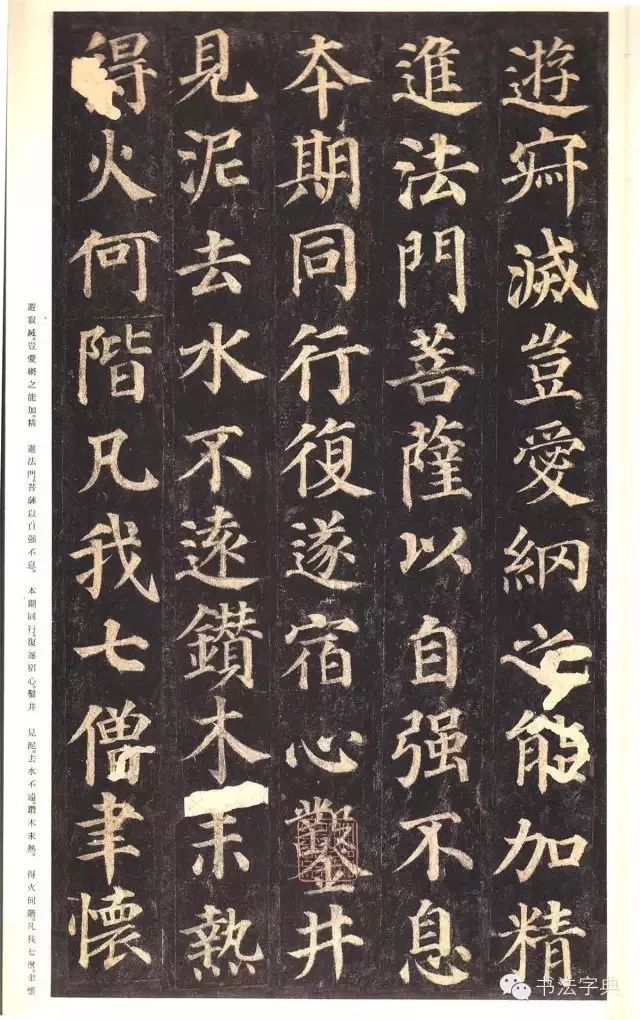 遊寂滅豈愛網之能加精
進法門菩薩以自强不息
本期同行復遂宿心鑿井
見泥去水不遠鑽木未熱
得火何階凡我七僧聿懷
遊寂滅。豈愛網之能加。精　進法門。菩薩以自强不息。　本期同行。復遂宿心。鑿井　見泥。去水不遠。鑽木未熱。　得火何階。凡我七僧。聿懷
书法字典